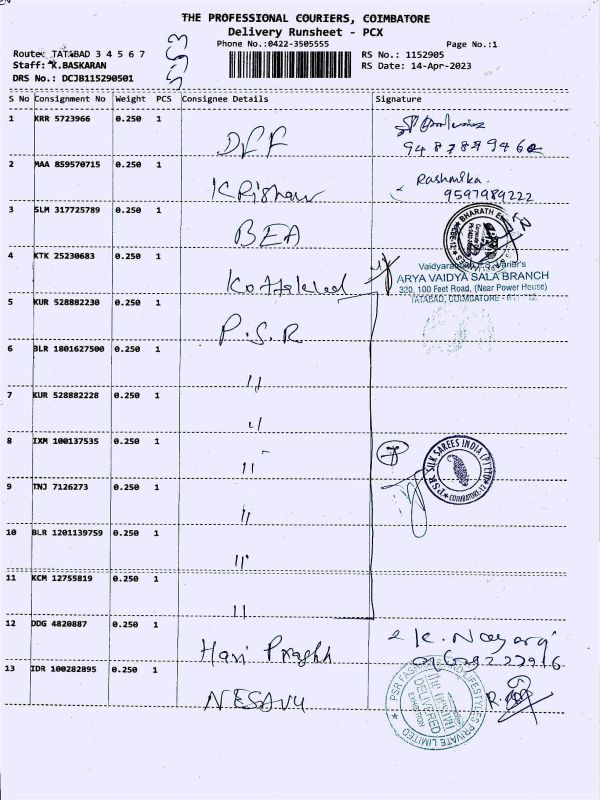 THE PROFESSIONAL COURIERS, COIMBATORE
Delivery Runsheet - PCX
Phone No.:0422-3505555
Page No.:1
Route: TATABAD 3 4 5 6 7
Staff: K.BASKARAN
DRS No.: DCJB115290501
RS No.: 1152905
RS Date: 14-Apr-2023
553
S No Consignment No Weight PCS Consignee Details Signature
1 KRR 5723966 0.250 1 DFF
2 MAA 859570715 0.250 1 Krishan Rashmika.
9597989222
3 SLM 317725789 0.250 1 BEA
BHARATH
4 KTK 25230683 0.250 1 Kottakkal
ARYA VAIDYA SALA BRANCH
320, 100 Feet Road, (Near Power House)
TATABAD, COIMBATORE - 641 012
5 KUR 528882230 0.250 1 P.S.R
6 BLR 1801627500 0.250 1 "
7 KUR 528882228 0.250 1 "
8 IXM 100137535 0.250 1 "
PSR SILK SAREES INDIA (P) LTD
COIMBATORE-12
9 TNJ 7126273 0.250 1 "
10 BLR 1201139759 0.250 1 "
11 KCM 12755819 0.250 1 "
12 DDG 4820887 0.250 1 Hari
13 IDR 100282895 0.250 1 NESAVU
DELIVERED
LIFESTYLES PRIVATE LIMITED